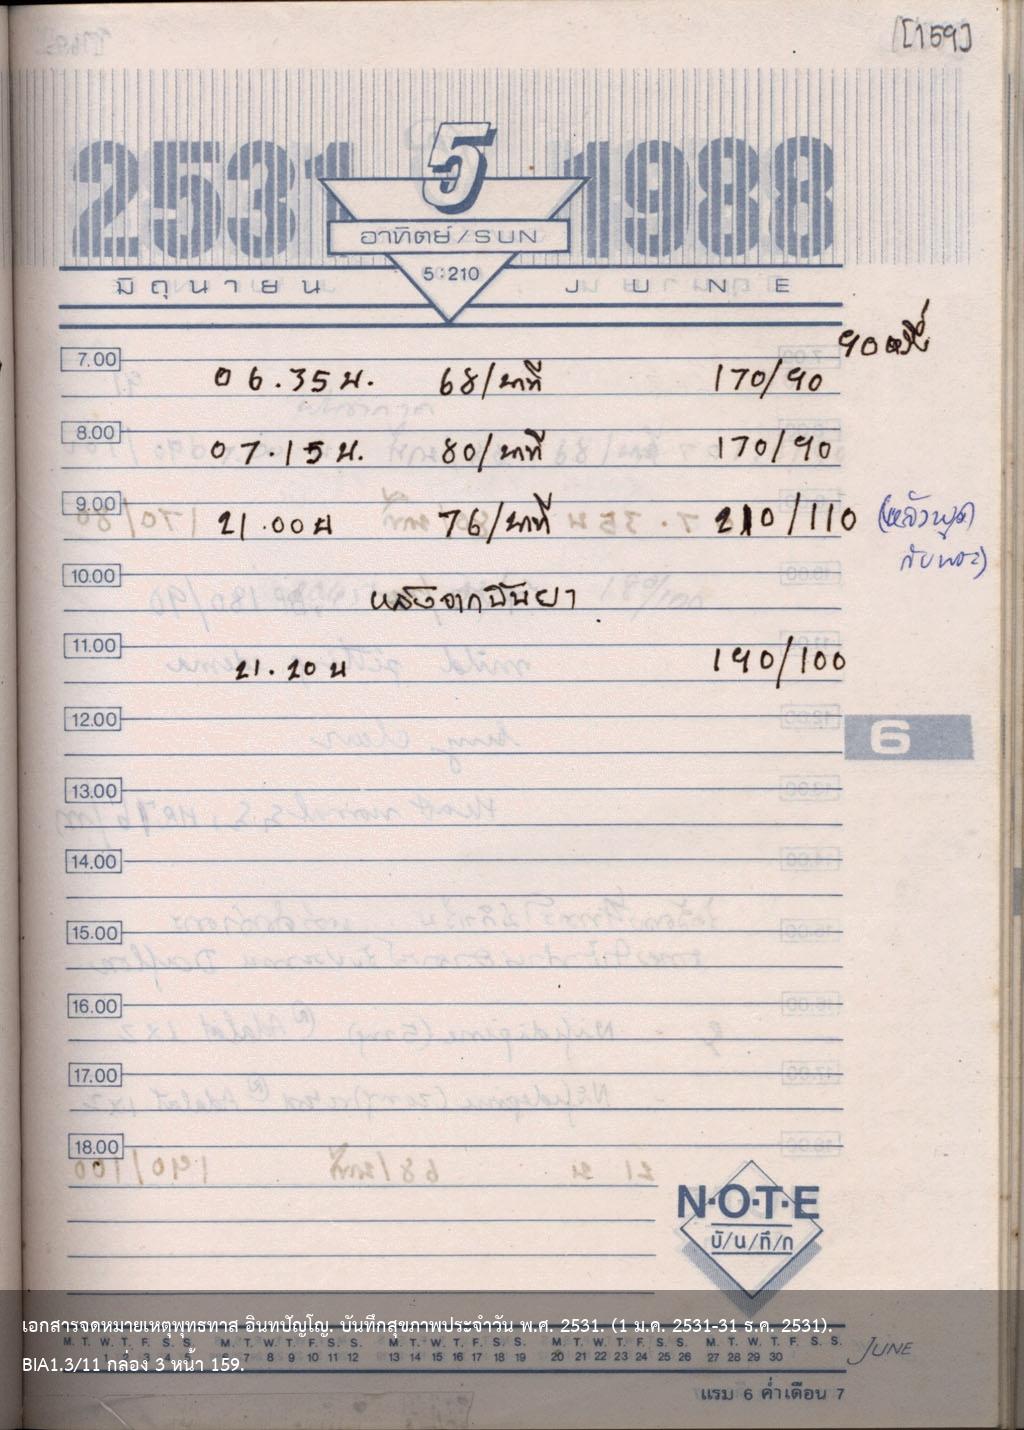 [159]
2531 5 1988
อาทิตย์/SUN
5:210
มิถุนายน JUNE
7.00
06.35 น. 68/นาที 170/90
8.00
07.15 น. 80/นาที 170/90
9.00
21.00 น 76/นาที 210/110 (หลังพูด
กับพระ)
10.00
หลังจากฉันยา
11.00
21.20 น 190/100
12.00
6
13.00
14.00
15.00
16.00
17.00
18.00
N·O·T·E
บั/น/ทึ/ก
เอกสารจดหมายเหตุพุทธทาส อินทปัญโญ. บันทึกสุขภาพประจำวัน พ.ศ. 2531. (1 ม.ค. 2531-31 ธ.ค. 2531).
M. T. W. T. F. S. S. M. T. W. T. F. S. S. M. T. W. T. F. S. S. M. T. W. T. F. S. S. M. T. W. T. F. S. S.
1 2 3 4 5 6 7 8 9 10 11 12 13 14 15 16 17 18 19 20 21 22 23 24 25 26 27 28 29 30
JUNE
BIA1.3/11 กล่อง 3 หน้า 159.
แรม 6 ค่ำเดือน 7